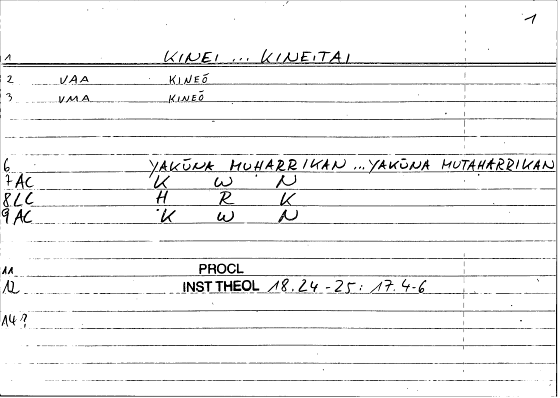 1
1 KINEI ... KINEITAI
2 VAA KINEŌ
3 VMA KINEŌ
6 YAKŪNA MUḤARRIKAN ... YAKŪNA MUTAḤARRIKAN
7 AC K W N
8 LC Ḥ R K
9 AC K W N
11 PROCL
12 INST THEOL 18.24-25: 17.4-6
14?